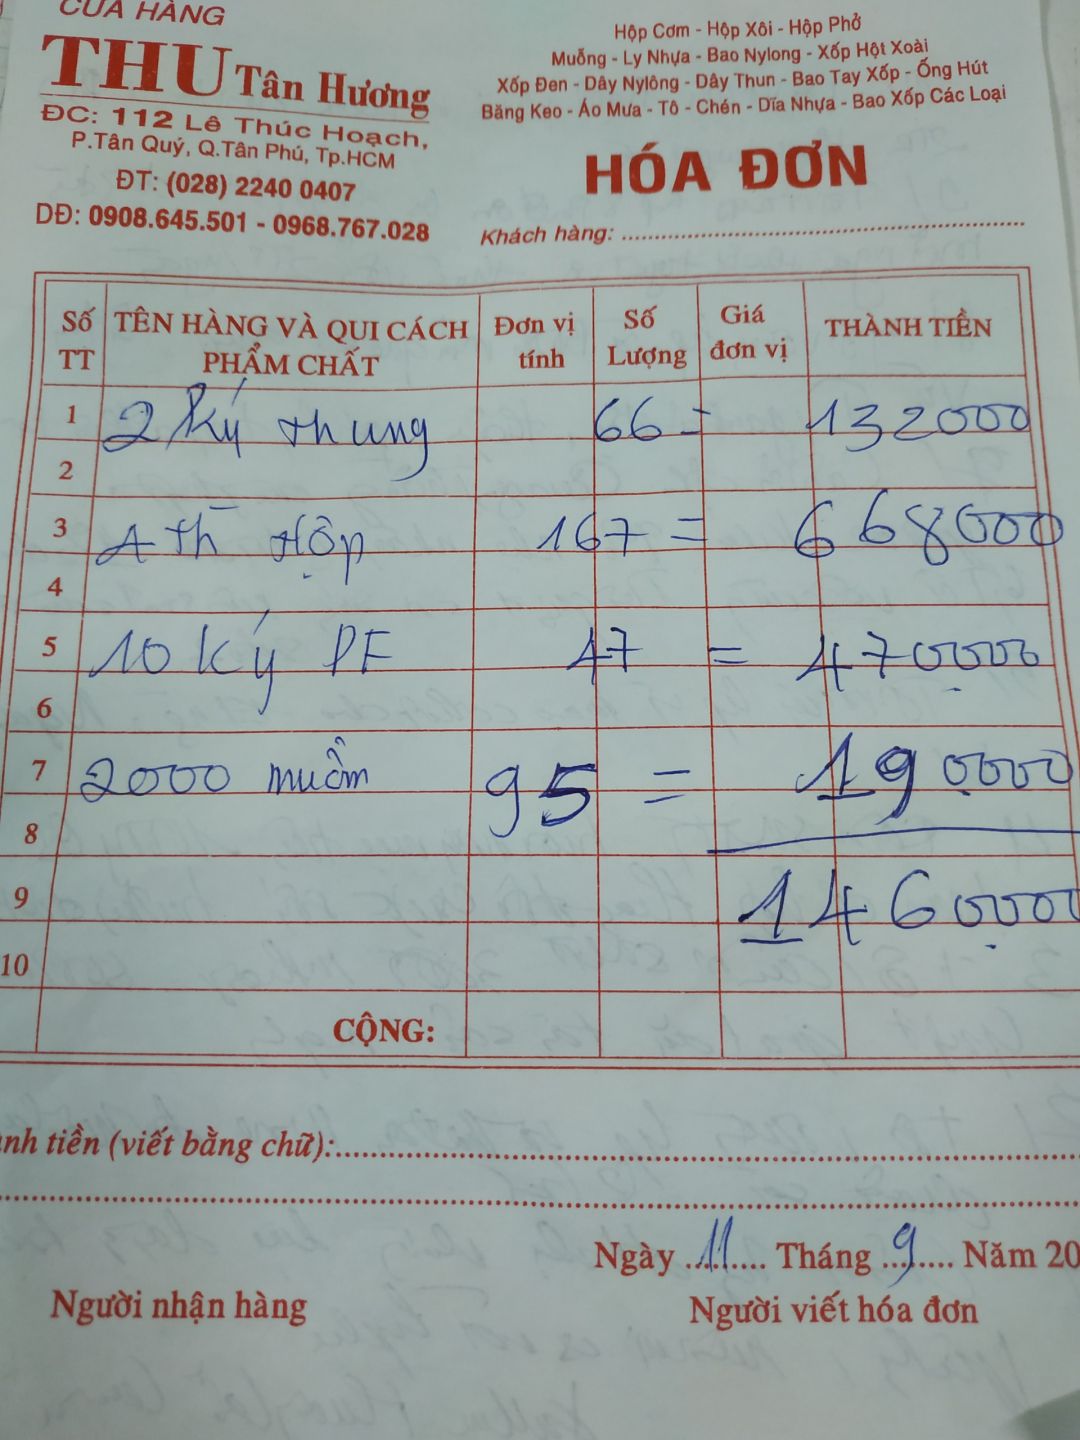 CỬA HÀNG
THU Tân Hương
ĐC: 112 Lê Thúc Hoạch,
P.Tân Quý, Q.Tân Phú, Tp.HCM
ĐT: (028) 2240 0407
DĐ: 0908.645.501 - 0968.767.028
Hộp Cơm - Hộp Xôi - Hộp Phở
Muỗng - Ly Nhựa - Bao Nylong - Xốp Hột Xoài
Xốp Đen - Dây Nylông - Dây Thun - Bao Tay Xốp - Ống Hút
Băng Keo - Áo Mưa - Tô - Chén - Dĩa Nhựa - Bao Xốp Các Loại
HÓA ĐƠN
Khách hàng:
Số TT TÊN HÀNG VÀ QUI CÁCH PHẨM CHẤT Đơn vị tính Số Lượng Giá đơn vị THÀNH TIỀN
1 2 Ký thung 66 = 132000
2
3 4 th Hộp 167 = 668000
4
5 10 Ký PF 47 = 470000
6
7 2000 muồm 95 = 190000
8
9 1460000
10
CỘNG:
ành tiền (viết bằng chữ):
Ngày 11 Tháng 9 Năm 20
Người nhận hàng Người viết hóa đơn